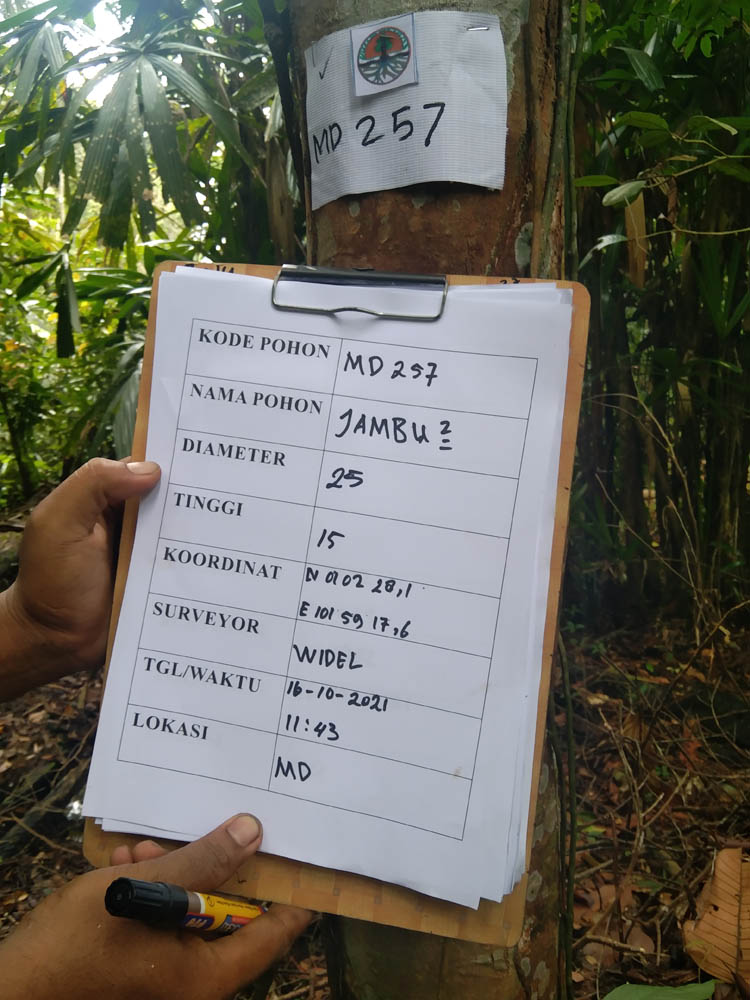 MD 257
KODE POHON MD 257
NAMA POHON JAMBU 2
DIAMETER 25
TINGGI 15
KOORDINAT N 01 02 28,1
E 101 59 17,6
SURVEYOR WIDEL
TGL/WAKTU 16-10-2021
11:43
LOKASI MD